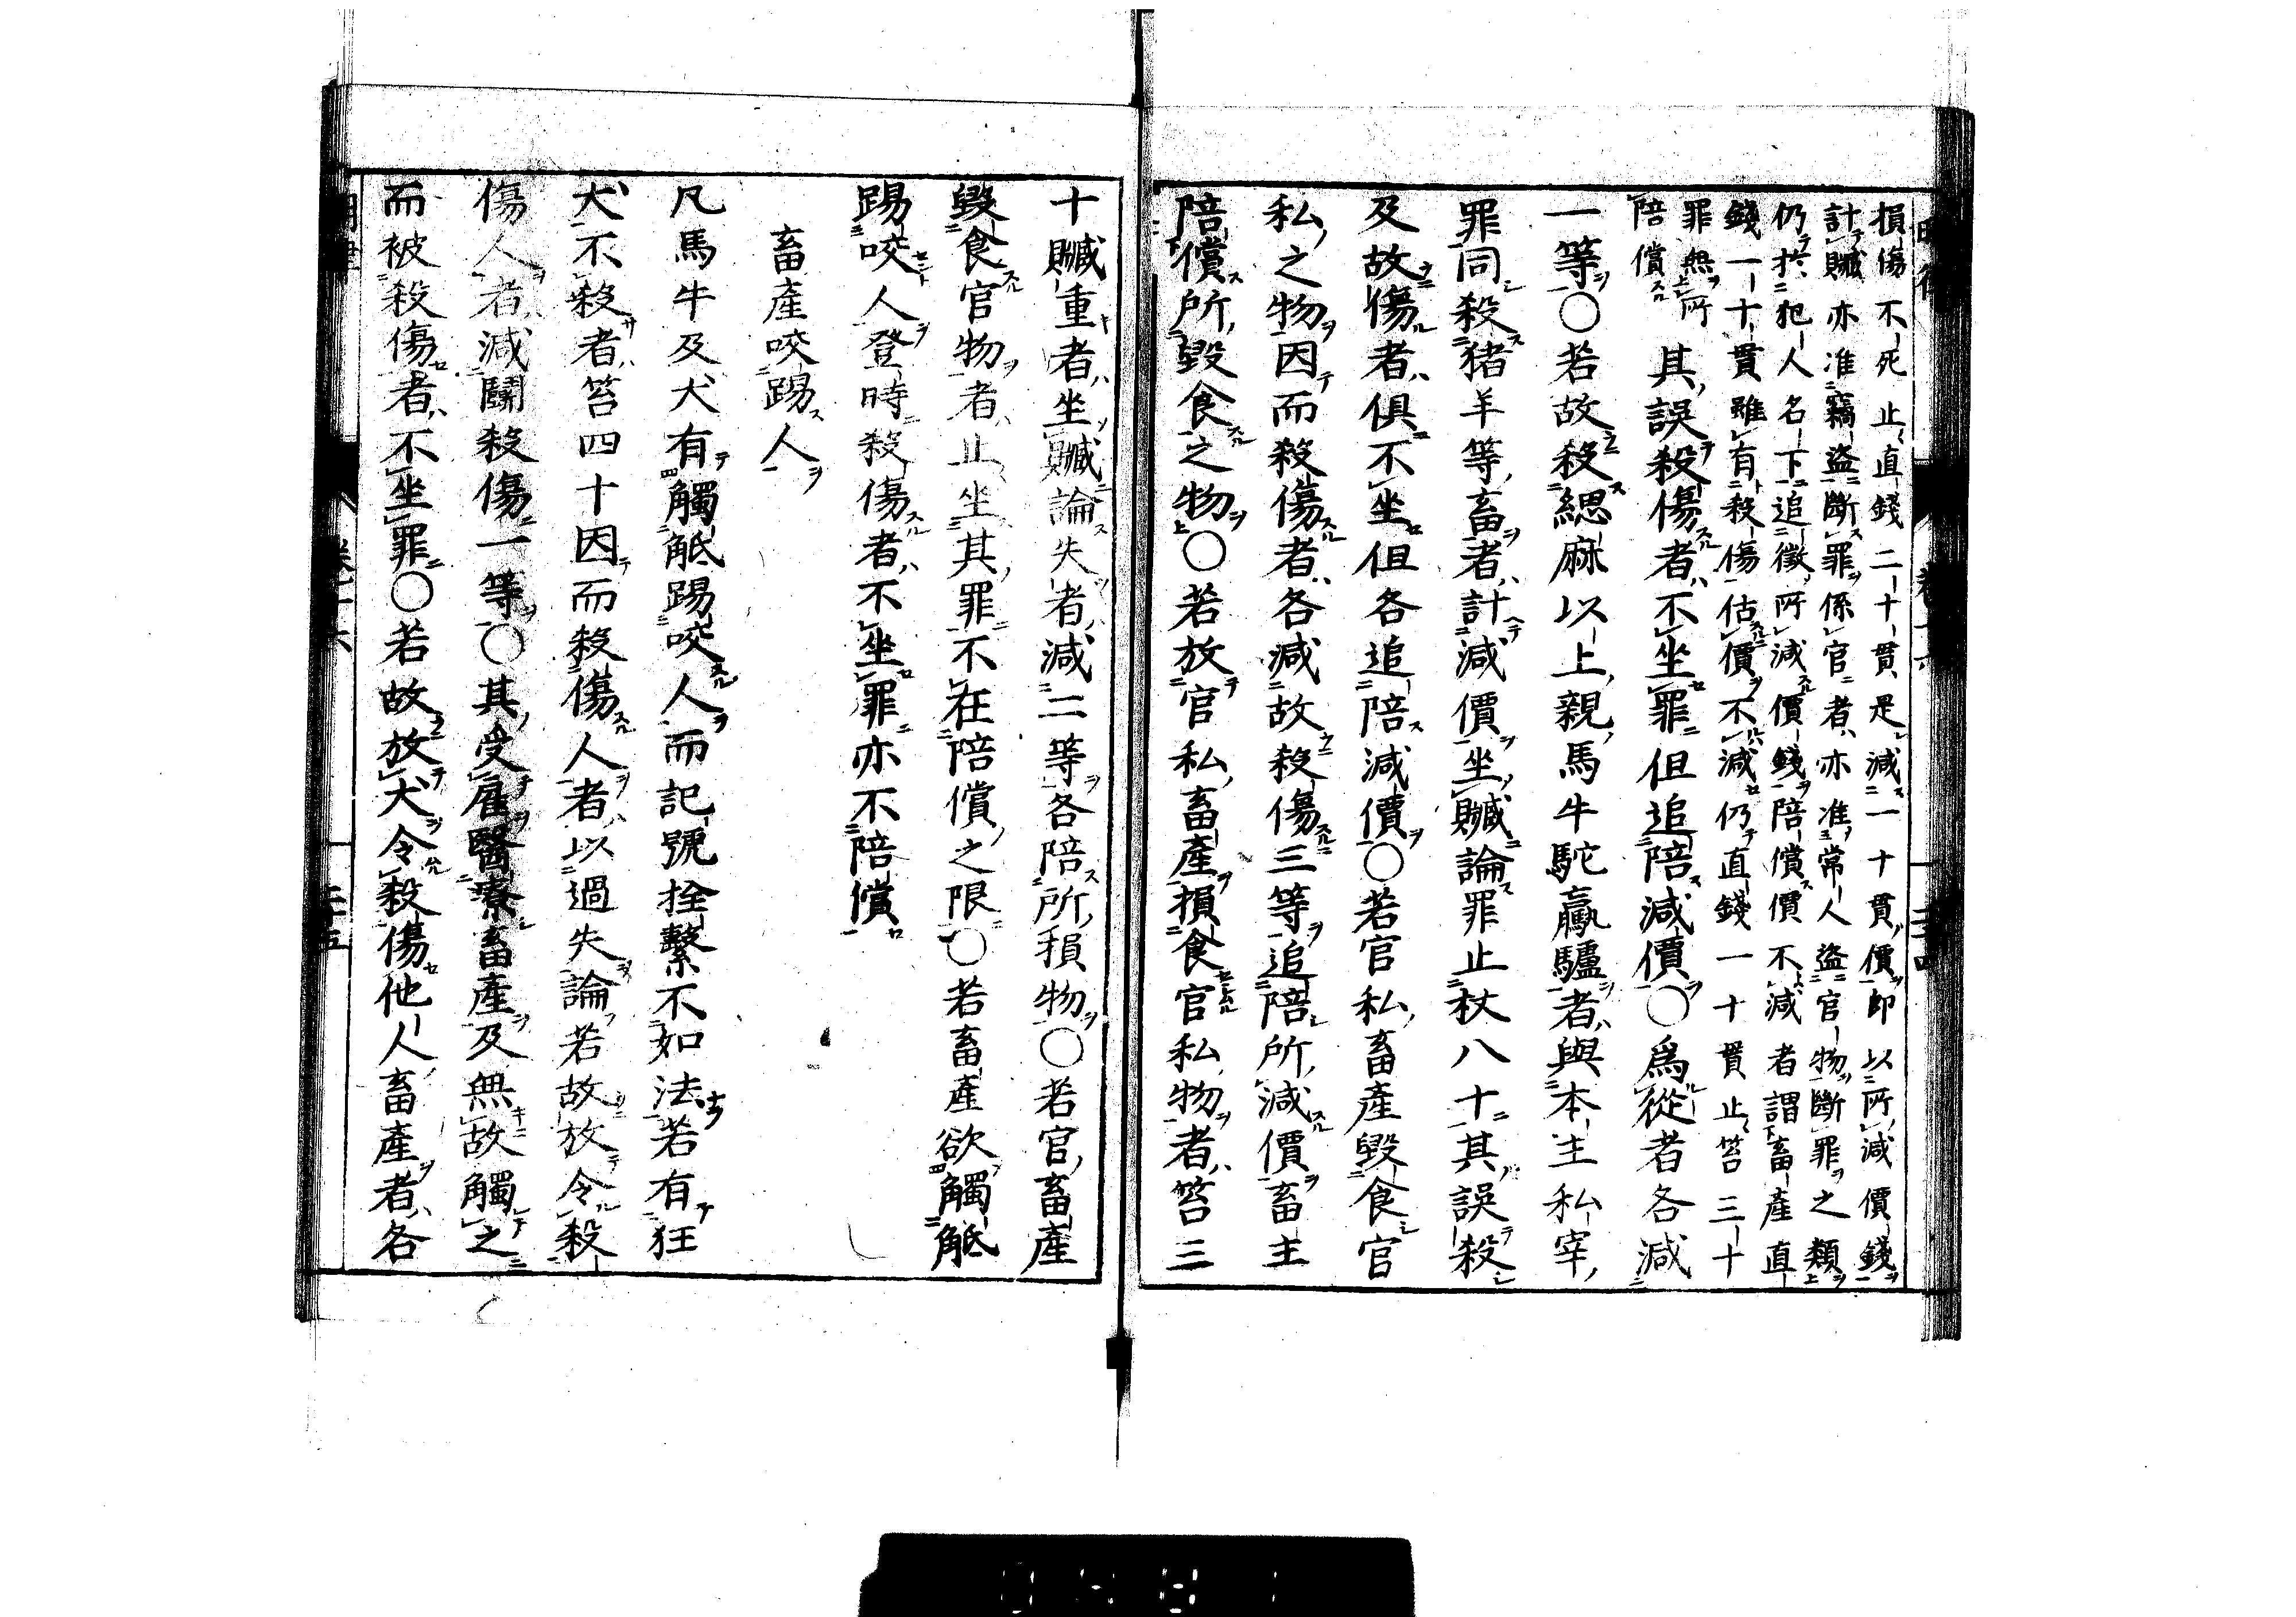 損傷不死止直錢二十貫是減一十貫價即以所減價錢
計贓亦准竊盜斷罪係官者亦准常人盜官物斷罪之類
仍於犯人名下追徵所減價錢陪償價不減者謂畜產直
錢一十貫雖有殺傷估價不減仍直錢一十貫止笞三十
罪無所
陪償
其誤殺傷者不坐罪但追陪減價〇為從者各減
一等〇若故殺緦麻以上親馬牛駝驘驢者與本主私宰
罪同殺猪羊等畜者計減價坐贓論罪止杖八十其誤殺
及故傷者俱不坐但各追陪減價〇若官私畜產毀食官
私之物因而殺傷者各減故殺傷三等追陪所減價畜主
陪償所毀食之物〇若放官私畜產損食官私物者笞三
十贓重者坐贓論失者減二等各陪所損物〇若官畜產
毀食官物者止坐其罪不在陪償之限〇若畜產欲觸觝
踢咬人登時殺傷者不坐罪亦不陪償
畜產咬踢人
凡馬牛及犬有觸觝踢咬人而記號拴繫不如法若有狂
犬不殺者笞四十因而殺傷人者以過失論若故放令殺
傷人者減鬬殺傷一等〇其受雇醫療畜產及無故觸之
而被殺傷者不坐罪〇若故放犬令殺傷他人畜產者各